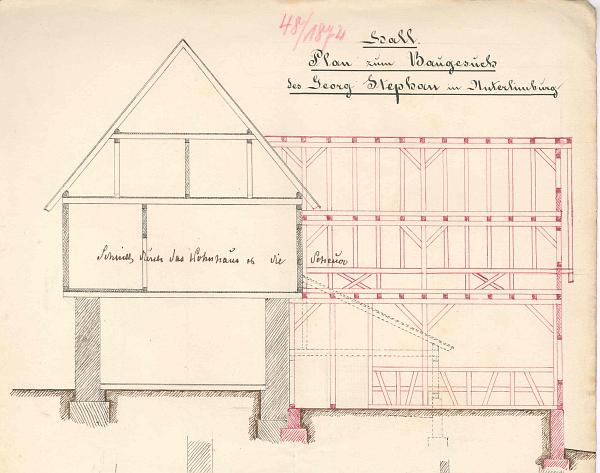 48/1874
Hall.
Plan zum Baugesuch
des Georg Stephan in Unterlimburg
Schnitt durch das Wohnhaus & die Scheuer